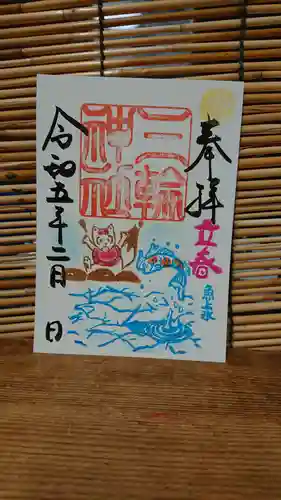 奉拝
立春
魚上氷
三輪
神社
令和五年二月　日